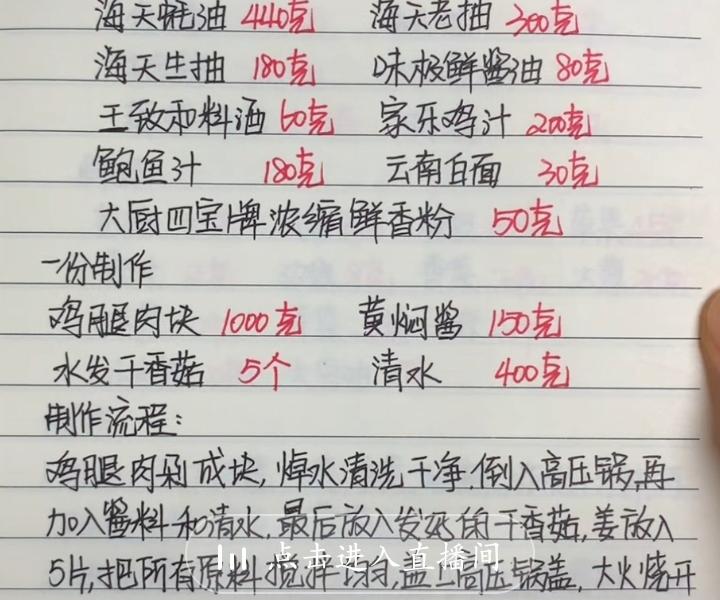 海天蚝油 440克 海天老抽 300克
海天生抽 180克 味极鲜酱油 80克
王致和料酒 60克 家乐鸡汁 200克
鲍鱼汁 180克 云南白面 30克
大厨四宝牌浓缩鲜香粉 50克
一份制作
鸡腿肉块 1000克 黄焖酱 150克
水发干香菇 5个 清水 400克
制作流程:
鸡腿肉剁成块,焯水清洗干净.倒入高压锅,再
加入酱料和清水,最后放入发好的干香菇,姜放入
点击进入直播间
5片,把所有原料搅拌均匀,盖上高压锅盖,大火烧开